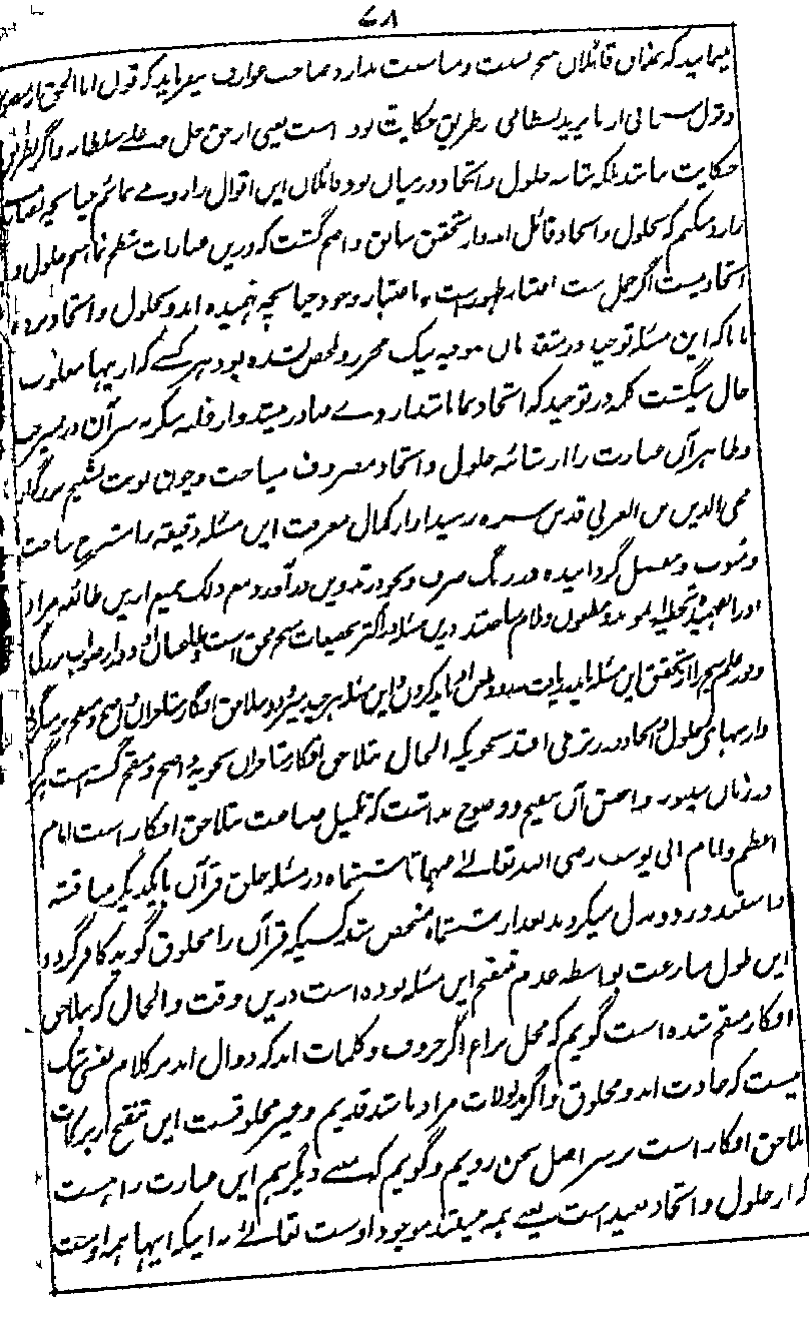 ٦٨
که قائلان و مناسبت ندارد صاحب عوارف میفرماید که قول انا الحق از منصور
و قول از بایزید بسطامی بطریق حکایت بود است یعنی از حق جل و علے سلطانه و اگر بطریق
حکایت نباشد بلکه شائبه حلول و اتحاد در میان بود قائلان این اقوال را رد مے نمائیم چنانچه نصاری
را رد میکنیم که بحلول و اتحاد قائل اند و از تحقیق سابق واضح گشت که درین عبارات حلول و
اتحاد نیست اگر حمل ست باعتبار ظهورست نه باعتبار وجود چنانچه فهمیده اند و بحلول و اتحاد برده
مانا که این مسئله توحید در متقدمان نیک محرر و ملخص نشده بود هر کسے که ازینها مغلوب
حال میگشت کلمه در توحید که اتحاد نما باشد از وے صادر میشد و از غلبه سکر به سر آن
و ظاهر آن عبارت را از شائبه حلول و اتحاد مصروف میساخت و چون نوبت بشیخ بزرگوار
محی الدین بن العربی قدس سره رسید او از کمال معرفت این مسئله دقیقه را مشرح ساخت
و مبوب و مفصل گردانیده در رنگ صرف و نحو در تدوین درآورد و مع ذلک جمعی ازین طائفه مراد
او را نفهمیده تخطیه نمودند و مطعون و ملام ساختند درین مسئله در اکثر تحقیقات شیخ محق است و طاعنان او دور از صواب بزرگی
و وفور علم شیخ را از تحقیق این مسئله باید دریافت نه رد و طعن او باید کرد و این مسئله هر چند میرود بتلاحق افکار متاخران واضح و منقح میگردد
و از شبهای حلول و اتحاد دورتر می افتد نحویکه الحال بتلاحق افکار متاخران نحویه واضح و منقح گشته است هرگز
در زمان سیبویه و اخفش آن تنقیح و وضوح نداشت که تکمیل صناعت بتلاحق افکار است امام
اعظم و امام ابی یوسف رضی الله تعالے عنهما تا ششماه در مسئله خلق قرآن با یکدیگر مباحثه
داشتند و رد و بدل میکردند بعد از ششماه مشخص شد کسیکه قرآن را مخلوق گوید کافر گردد
این طول منازعت بواسطه عدم تنقیح این مسئله بوده است درین وقت و الحال که بتلاحق
افکار منقح شده است گویم که محل نزاع اگر حروف و کلمات اند که دوال اند بر کلام نفسی شک
نیست که حادث اند و مخلوق و اگر مدلولات مراد باشد قدیم و غیر مخلوقست این تنقیح از برکات
تلاحق افکار است بر سر اصل سخن رویم و گوییم که معنے دیگر هم این عبارت را هست
که از حلول و اتحاد بعید است یعنے همه نیستند موجود اوست تعالے نه اینکه اینها همه اوست